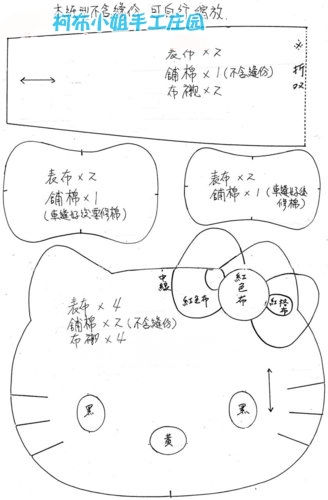 本紙型不含縫份，可自行縮放.
柯布小姐手工庄园
表布 × 2
舖棉 × 1 (不含縫份)
布襯 × 2
※折双
表布 × 2
舖棉 × 1
(車縫好後要修棉)
表布 × 2
舖棉 × 1 (車縫好後修棉)
中線
紅色布
紅色布
紅格布
表布 × 4
舖棉 × 2 (不含縫份)
布襯 × 4
黑
黑
黃